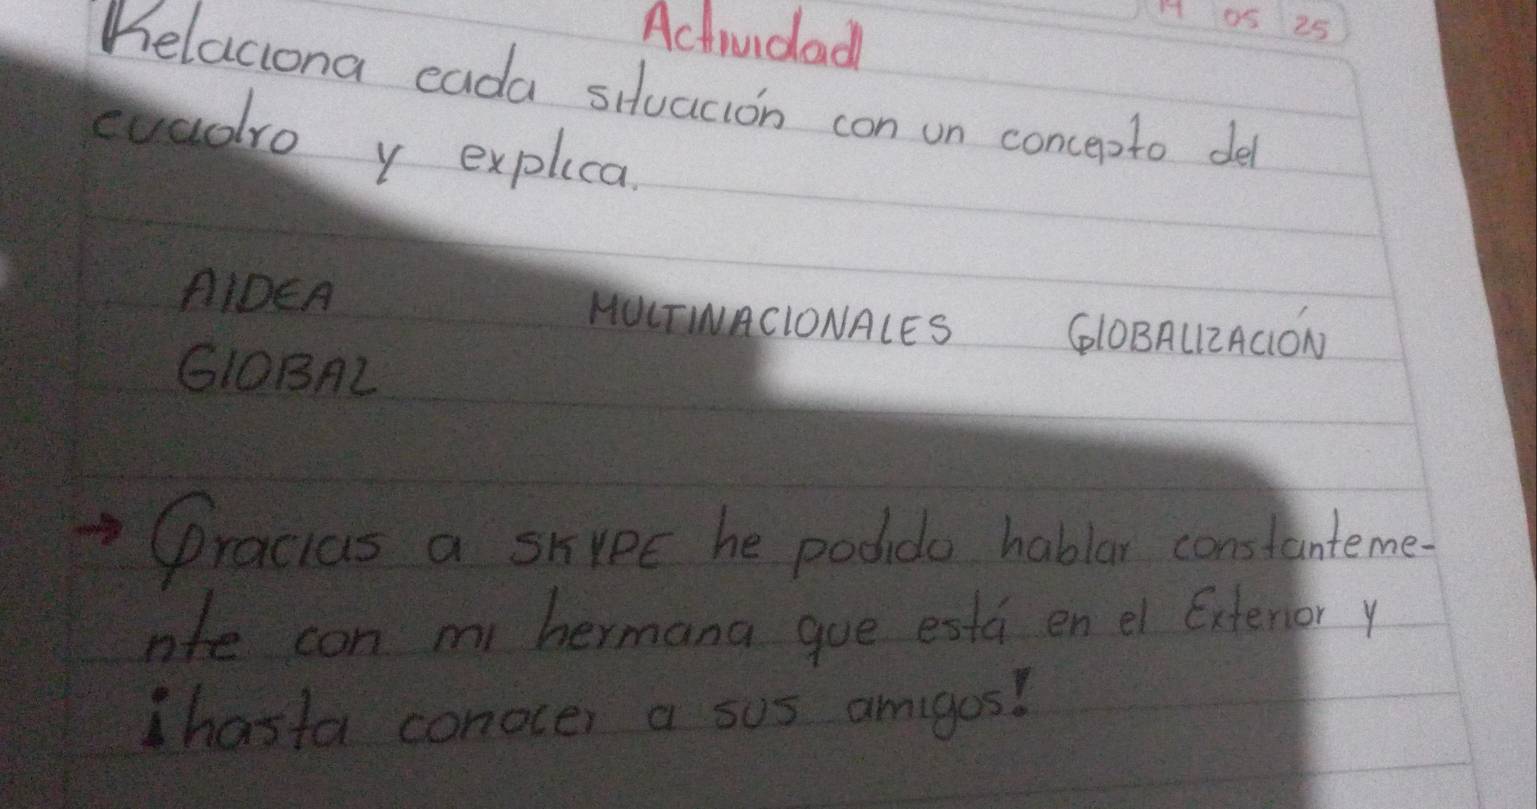 14 05 25
Actividad
Relaciona cada situación con un concepto del
cuadro y explica.
AlDEA MULTINACIONALES GlOBALIZACIÓN
GlOBAL
→ Gracias a SKYPE he podido hablar constanteme-
nte con mi hermana que está en el Exterior y
¡hasta conocer a sus amigos!